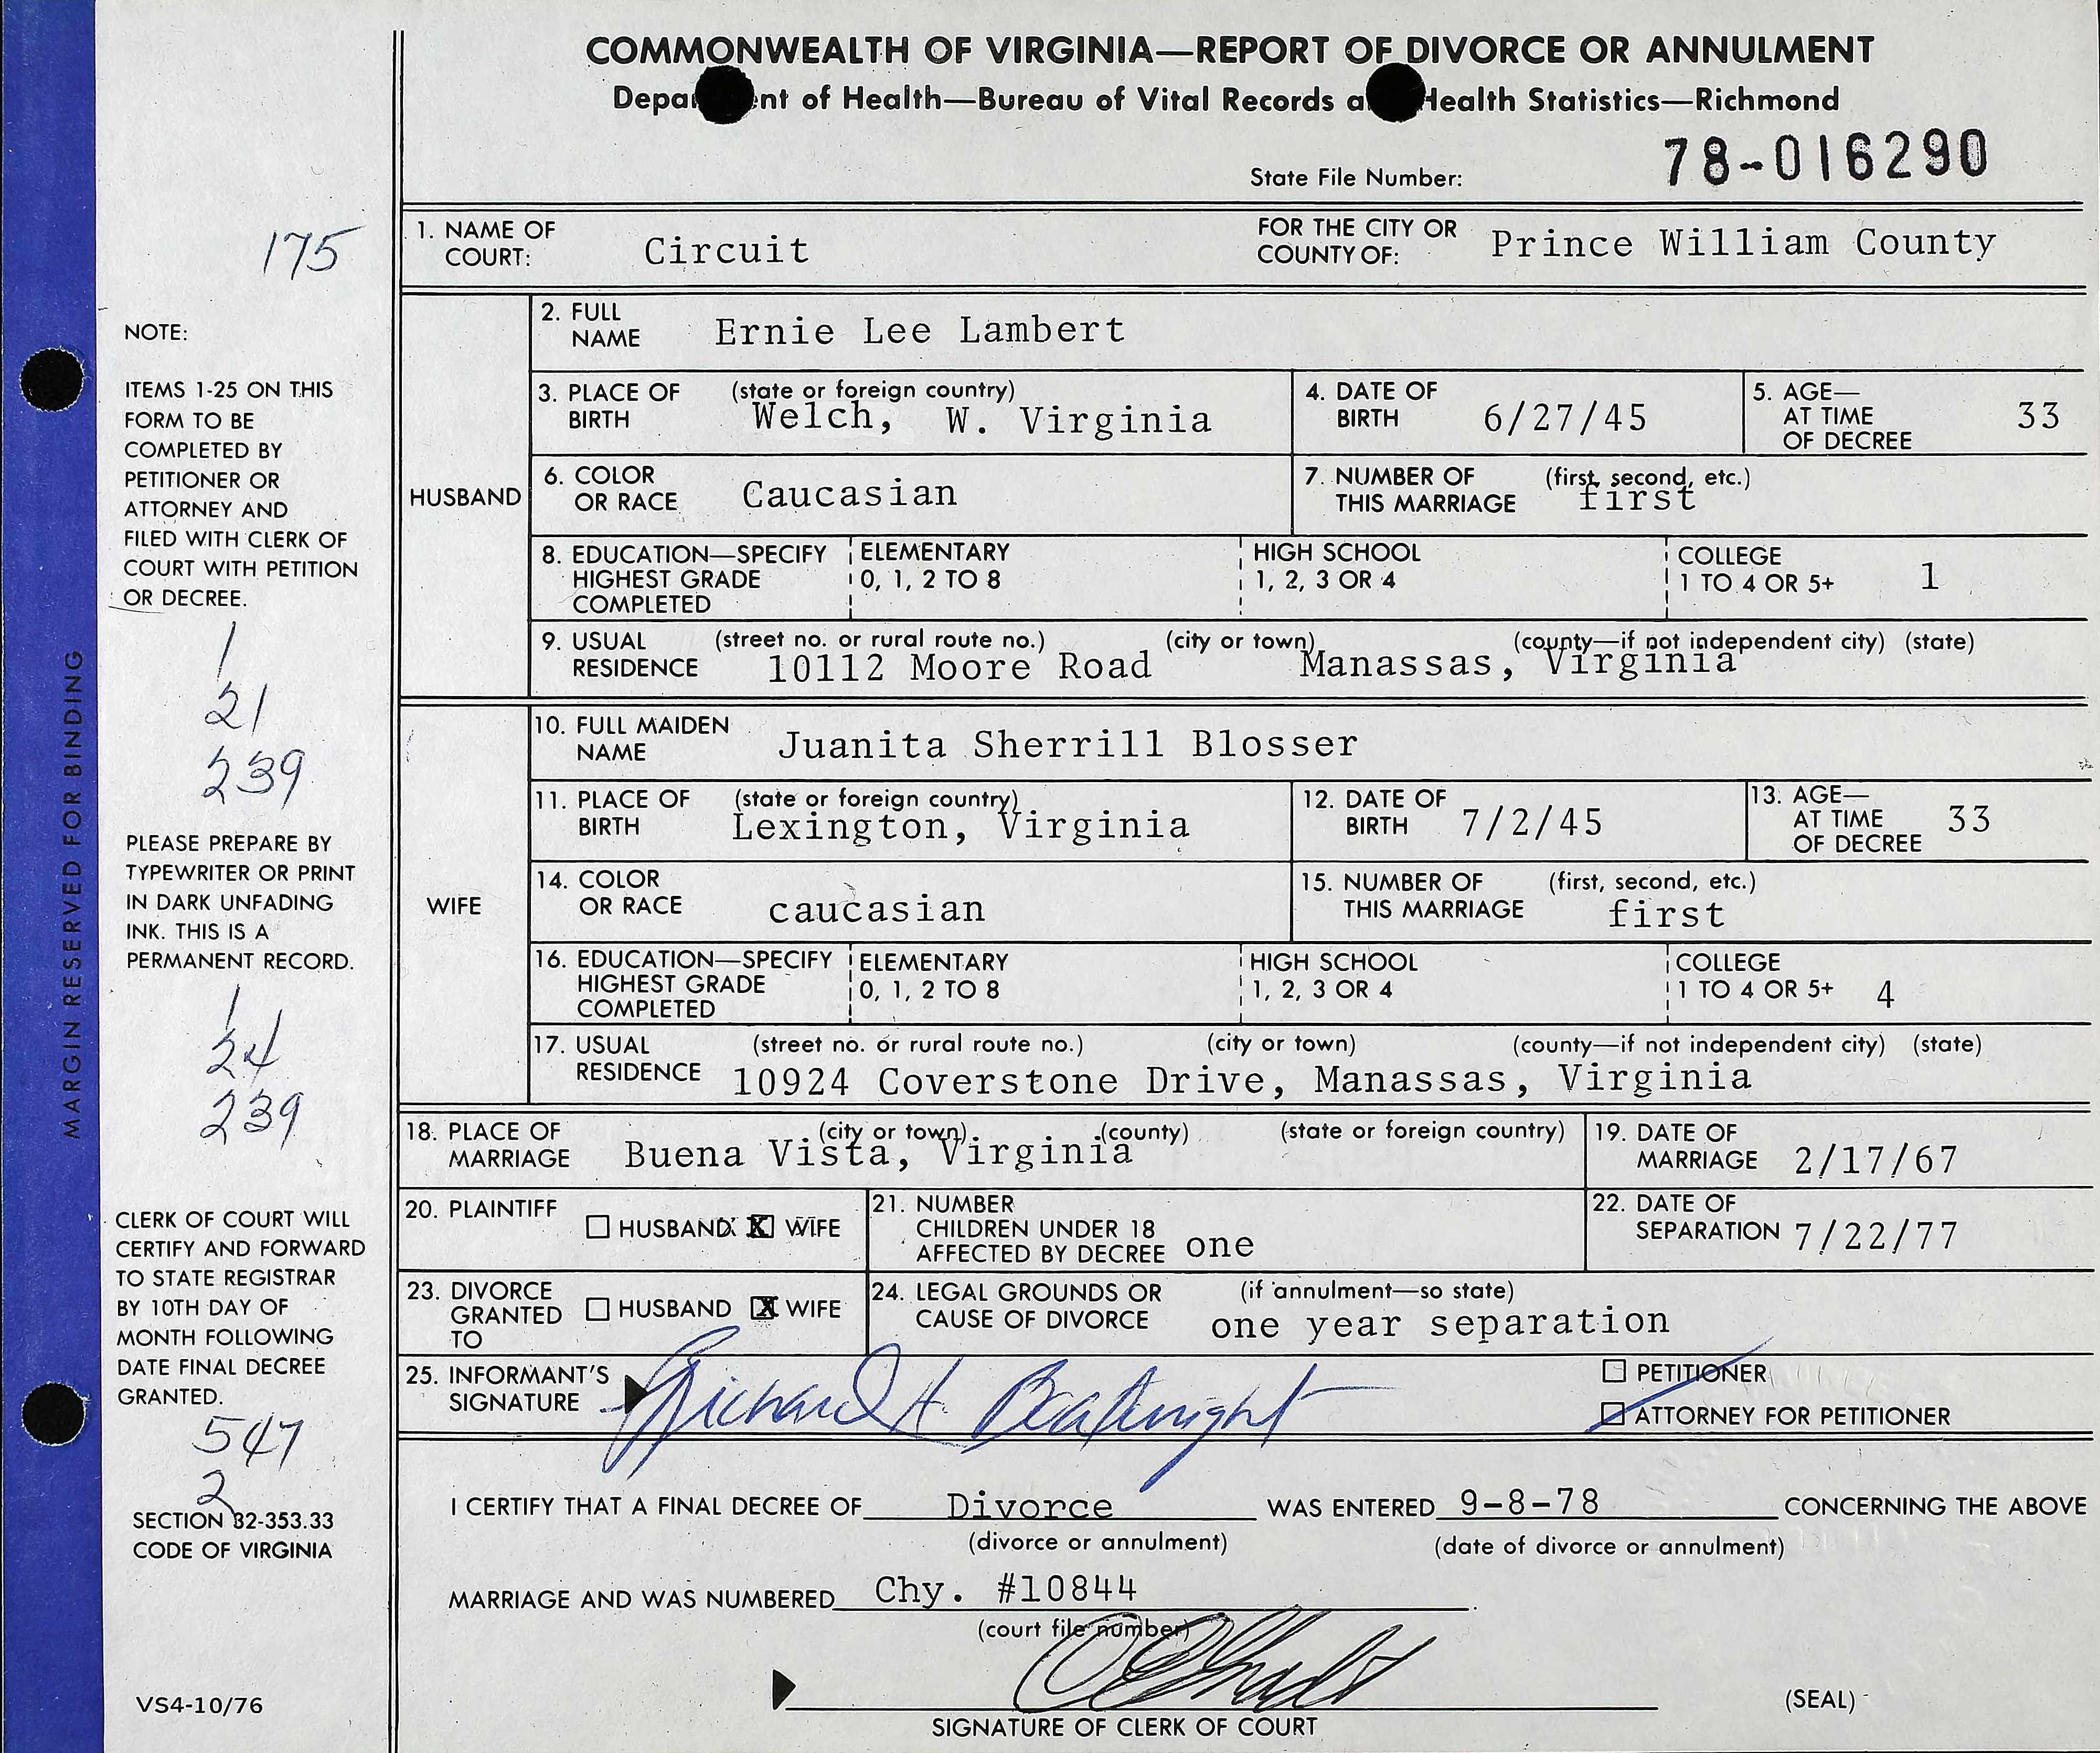 COMMONWEALTH OF VIRGINIA—REPORT OF DIVORCE OR ANNULMENT
Depa nt of Health—Bureau of Vital Records a Health Statistics—Richmond
State File Number: 78-016290
175
1. NAME OF COURT: Circuit FOR THE CITY OR COUNTY OF: Prince William County
HUSBAND
2. FULL NAME Ernie Lee Lambert
3. PLACE OF BIRTH (state or foreign country) Welch, W. Virginia
4. DATE OF BIRTH 6/27/45
5. AGE—AT TIME OF DECREE 33
6. COLOR OR RACE Caucasian
7. NUMBER OF THIS MARRIAGE (first, second, etc.) first
8. EDUCATION—SPECIFY HIGHEST GRADE COMPLETED ELEMENTARY 0, 1, 2 TO 8 HIGH SCHOOL 1, 2, 3 OR 4 COLLEGE 1 TO 4 OR 5+ 1
9. USUAL RESIDENCE (street no. or rural route no.) (city or town) (county—if not independent city) (state)
10112 Moore Road Manassas, Virginia
WIFE
10. FULL MAIDEN NAME Juanita Sherrill Blosser
11. PLACE OF BIRTH (state or foreign country) Lexington, Virginia
12. DATE OF BIRTH 7/2/45
13. AGE—AT TIME OF DECREE 33
14. COLOR OR RACE caucasian
15. NUMBER OF THIS MARRIAGE (first, second, etc.) first
16. EDUCATION—SPECIFY HIGHEST GRADE COMPLETED ELEMENTARY 0, 1, 2 TO 8 HIGH SCHOOL 1, 2, 3 OR 4 COLLEGE 1 TO 4 OR 5+ 4
17. USUAL RESIDENCE (street no. or rural route no.) (city or town) (county—if not independent city) (state)
10924 Coverstone Drive, Manassas, Virginia
18. PLACE OF MARRIAGE (city or town) (county) (state or foreign country) Buena Vista, Virginia
19. DATE OF MARRIAGE 2/17/67
20. PLAINTIFF ☐ HUSBAND ☒ WIFE
21. NUMBER CHILDREN UNDER 18 AFFECTED BY DECREE one
22. DATE OF SEPARATION 7/22/77
23. DIVORCE GRANTED TO ☐ HUSBAND ☒ WIFE
24. LEGAL GROUNDS OR CAUSE OF DIVORCE (if annulment—so state) one year separation
25. INFORMANT'S SIGNATURE Richard H. Boatwright
☐ PETITIONER
☑ ATTORNEY FOR PETITIONER
I CERTIFY THAT A FINAL DECREE OF Divorce WAS ENTERED 9-8-78 CONCERNING THE ABOVE
(divorce or annulment) (date of divorce or annulment)
MARRIAGE AND WAS NUMBERED Chy. #10844
(court file number)
SIGNATURE OF CLERK OF COURT
(SEAL)
MARGIN RESERVED FOR BINDING
NOTE:
ITEMS 1-25 ON THIS
FORM TO BE
COMPLETED BY
PETITIONER OR
ATTORNEY AND
FILED WITH CLERK OF
COURT WITH PETITION
OR DECREE.
1
21
239
PLEASE PREPARE BY
TYPEWRITER OR PRINT
IN DARK UNFADING
INK. THIS IS A
PERMANENT RECORD.
1
24
239
CLERK OF COURT WILL
CERTIFY AND FORWARD
TO STATE REGISTRAR
BY 10TH DAY OF
MONTH FOLLOWING
DATE FINAL DECREE
GRANTED.
547
2
SECTION 32-353.33
CODE OF VIRGINIA
VS4-10/76